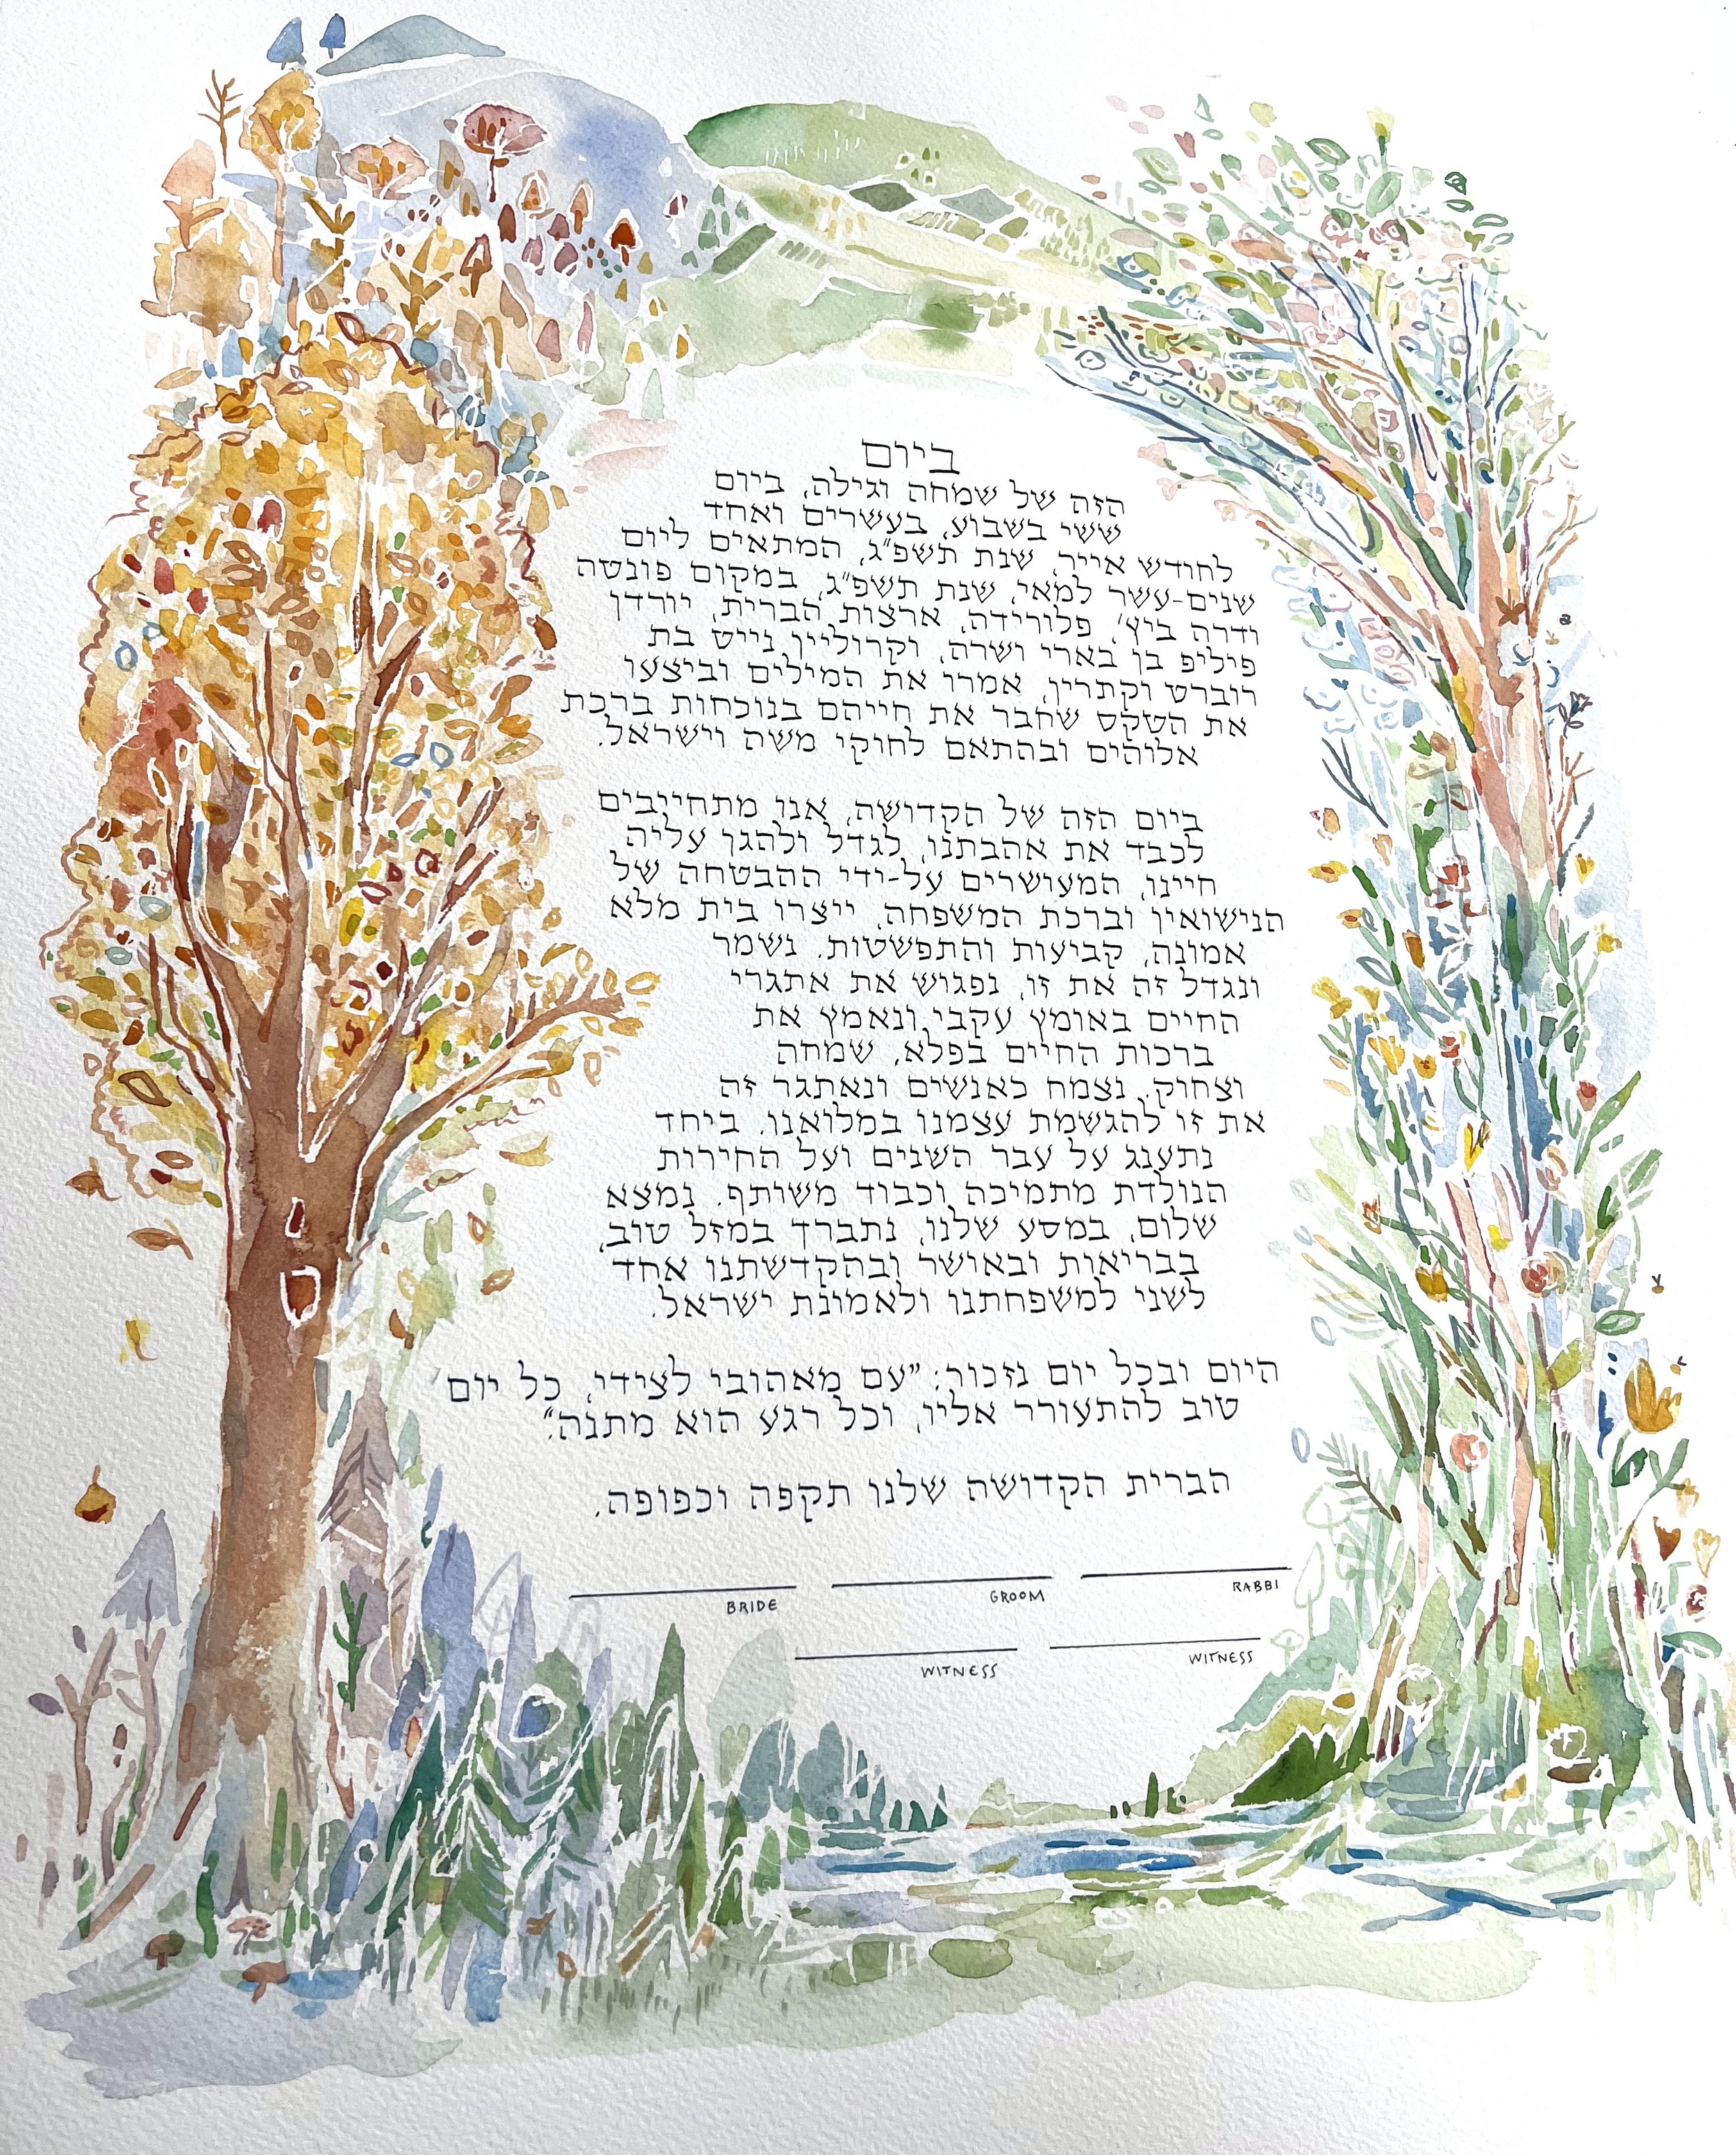 ביום
הזה של שמחה וגילה, ביום
ששי בשבוע, בעשרים ואחד
לחודש אייר, שנת תשפ״ג, המתאים ליום
שנים-עשר למאי, שנת תשפ״ג, במקום פונטה
ודרה ביץ׳, פלורידה, ארצות הברית, יורדן
פיליפ בן בארי ושרה, וקרוליין נייט בת
רוברט וקתרין, אמרו את המילים וביצעו
את הטקס שחבר את חייהם בנוכחות ברכת
אלוהים ובהתאם לחוקי משה וישראל.
ביום הזה של הקדושה, אנו מתחייבים
לכבד את אהבתנו, לגדל ולהגן עליה
חיינו, המעושרים על-ידי ההבטחה של
הנישואין וברכת המשפחה, ייצרו בית מלא
אמונה, קביעות והתפשטות. נשמר
ונגדל זה את זו, נפגוש את אתגרי
החיים באומץ עקבי ונאמץ את
ברכות החיים בפלא, שמחה
וצחוק. נצמח כאנשים ונאתגר זה
את זו להגשמת עצמנו במלואנו. ביחד
נתענג על עבר השנים ועל החירות
הנולדת מתמיכה וכבוד משותף. נמצא
שלום, במסע שלנו, נתברך במזל טוב,
בבריאות ובאושר ובהקדשתנו אחד
לשני למשפחתנו ולאמונת ישראל.
היום ובכל יום נזכור: ״עם מאהובי לצידי, כל יום
טוב להתעורר אליו, וכל רגע הוא מתנה.״
הברית הקדושה שלנו תקפה וכפופה.
BRIDE GROOM RABBI
WITNESS WITNESS